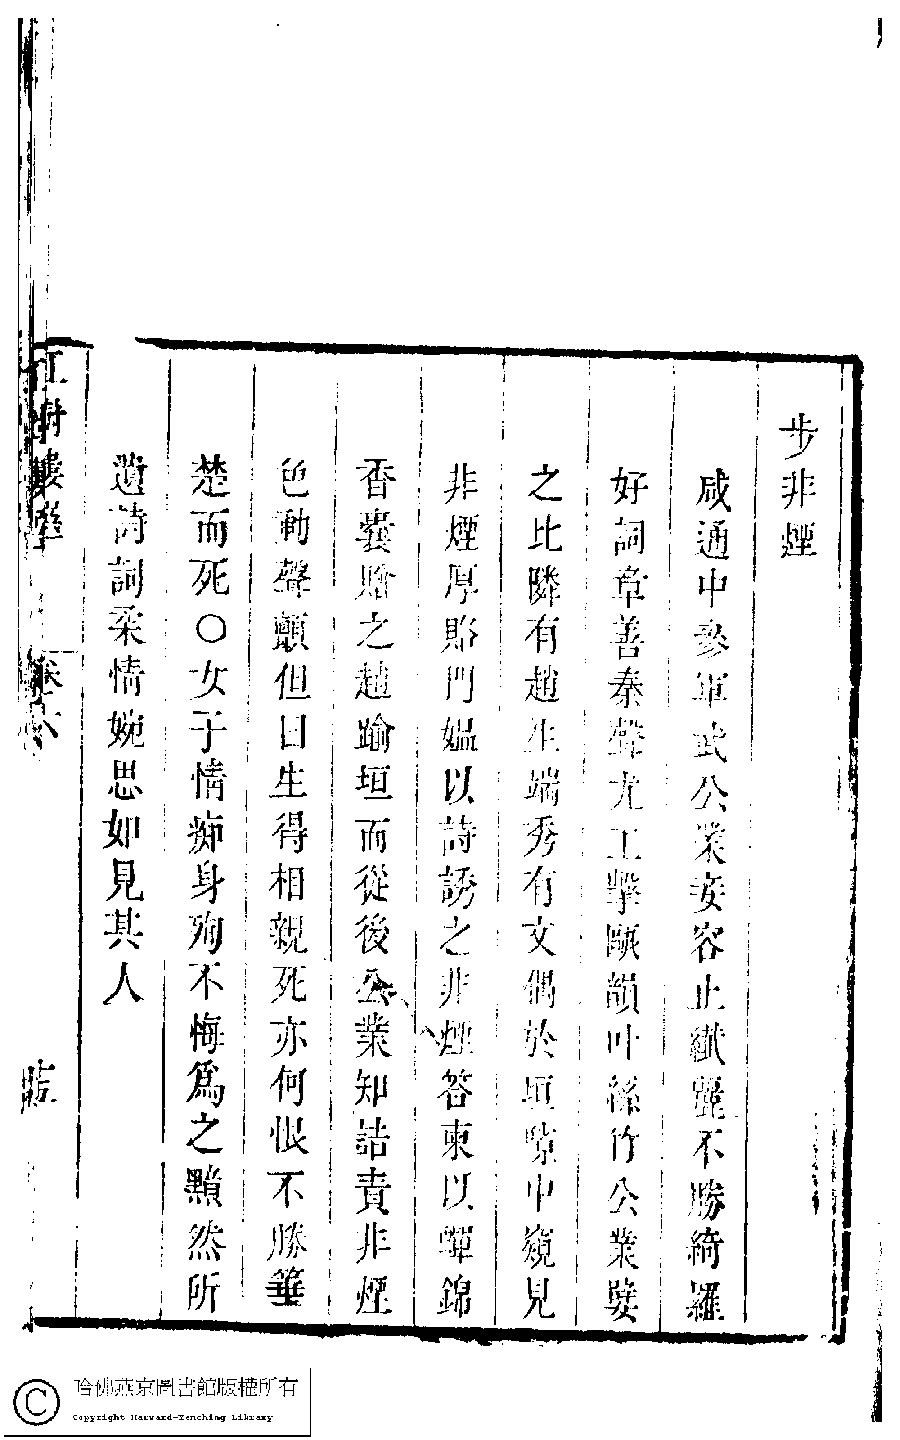 步非煙
咸通中參軍武公業妾容止纖麗不勝綺羅
好詞章善秦聲尤工擊甌韻叶絲竹公業嬖
之比隣有趙生端秀有文偶於垣隙中窺見
非煙厚賂門媼以詩誘之非煙答柬以蟬錦
香囊贈之趙踰垣而從後公業知詰責非煙
色動聲顫但曰生得相親死亦何恨不勝箠
楚而死○女子情痴身殉不悔爲之黯然所
遺詩詞柔情婉思如見其人
紅樹樓選 卷六
哈佛燕京圖書館版權所有
Copyright Harvard-Yenching Library